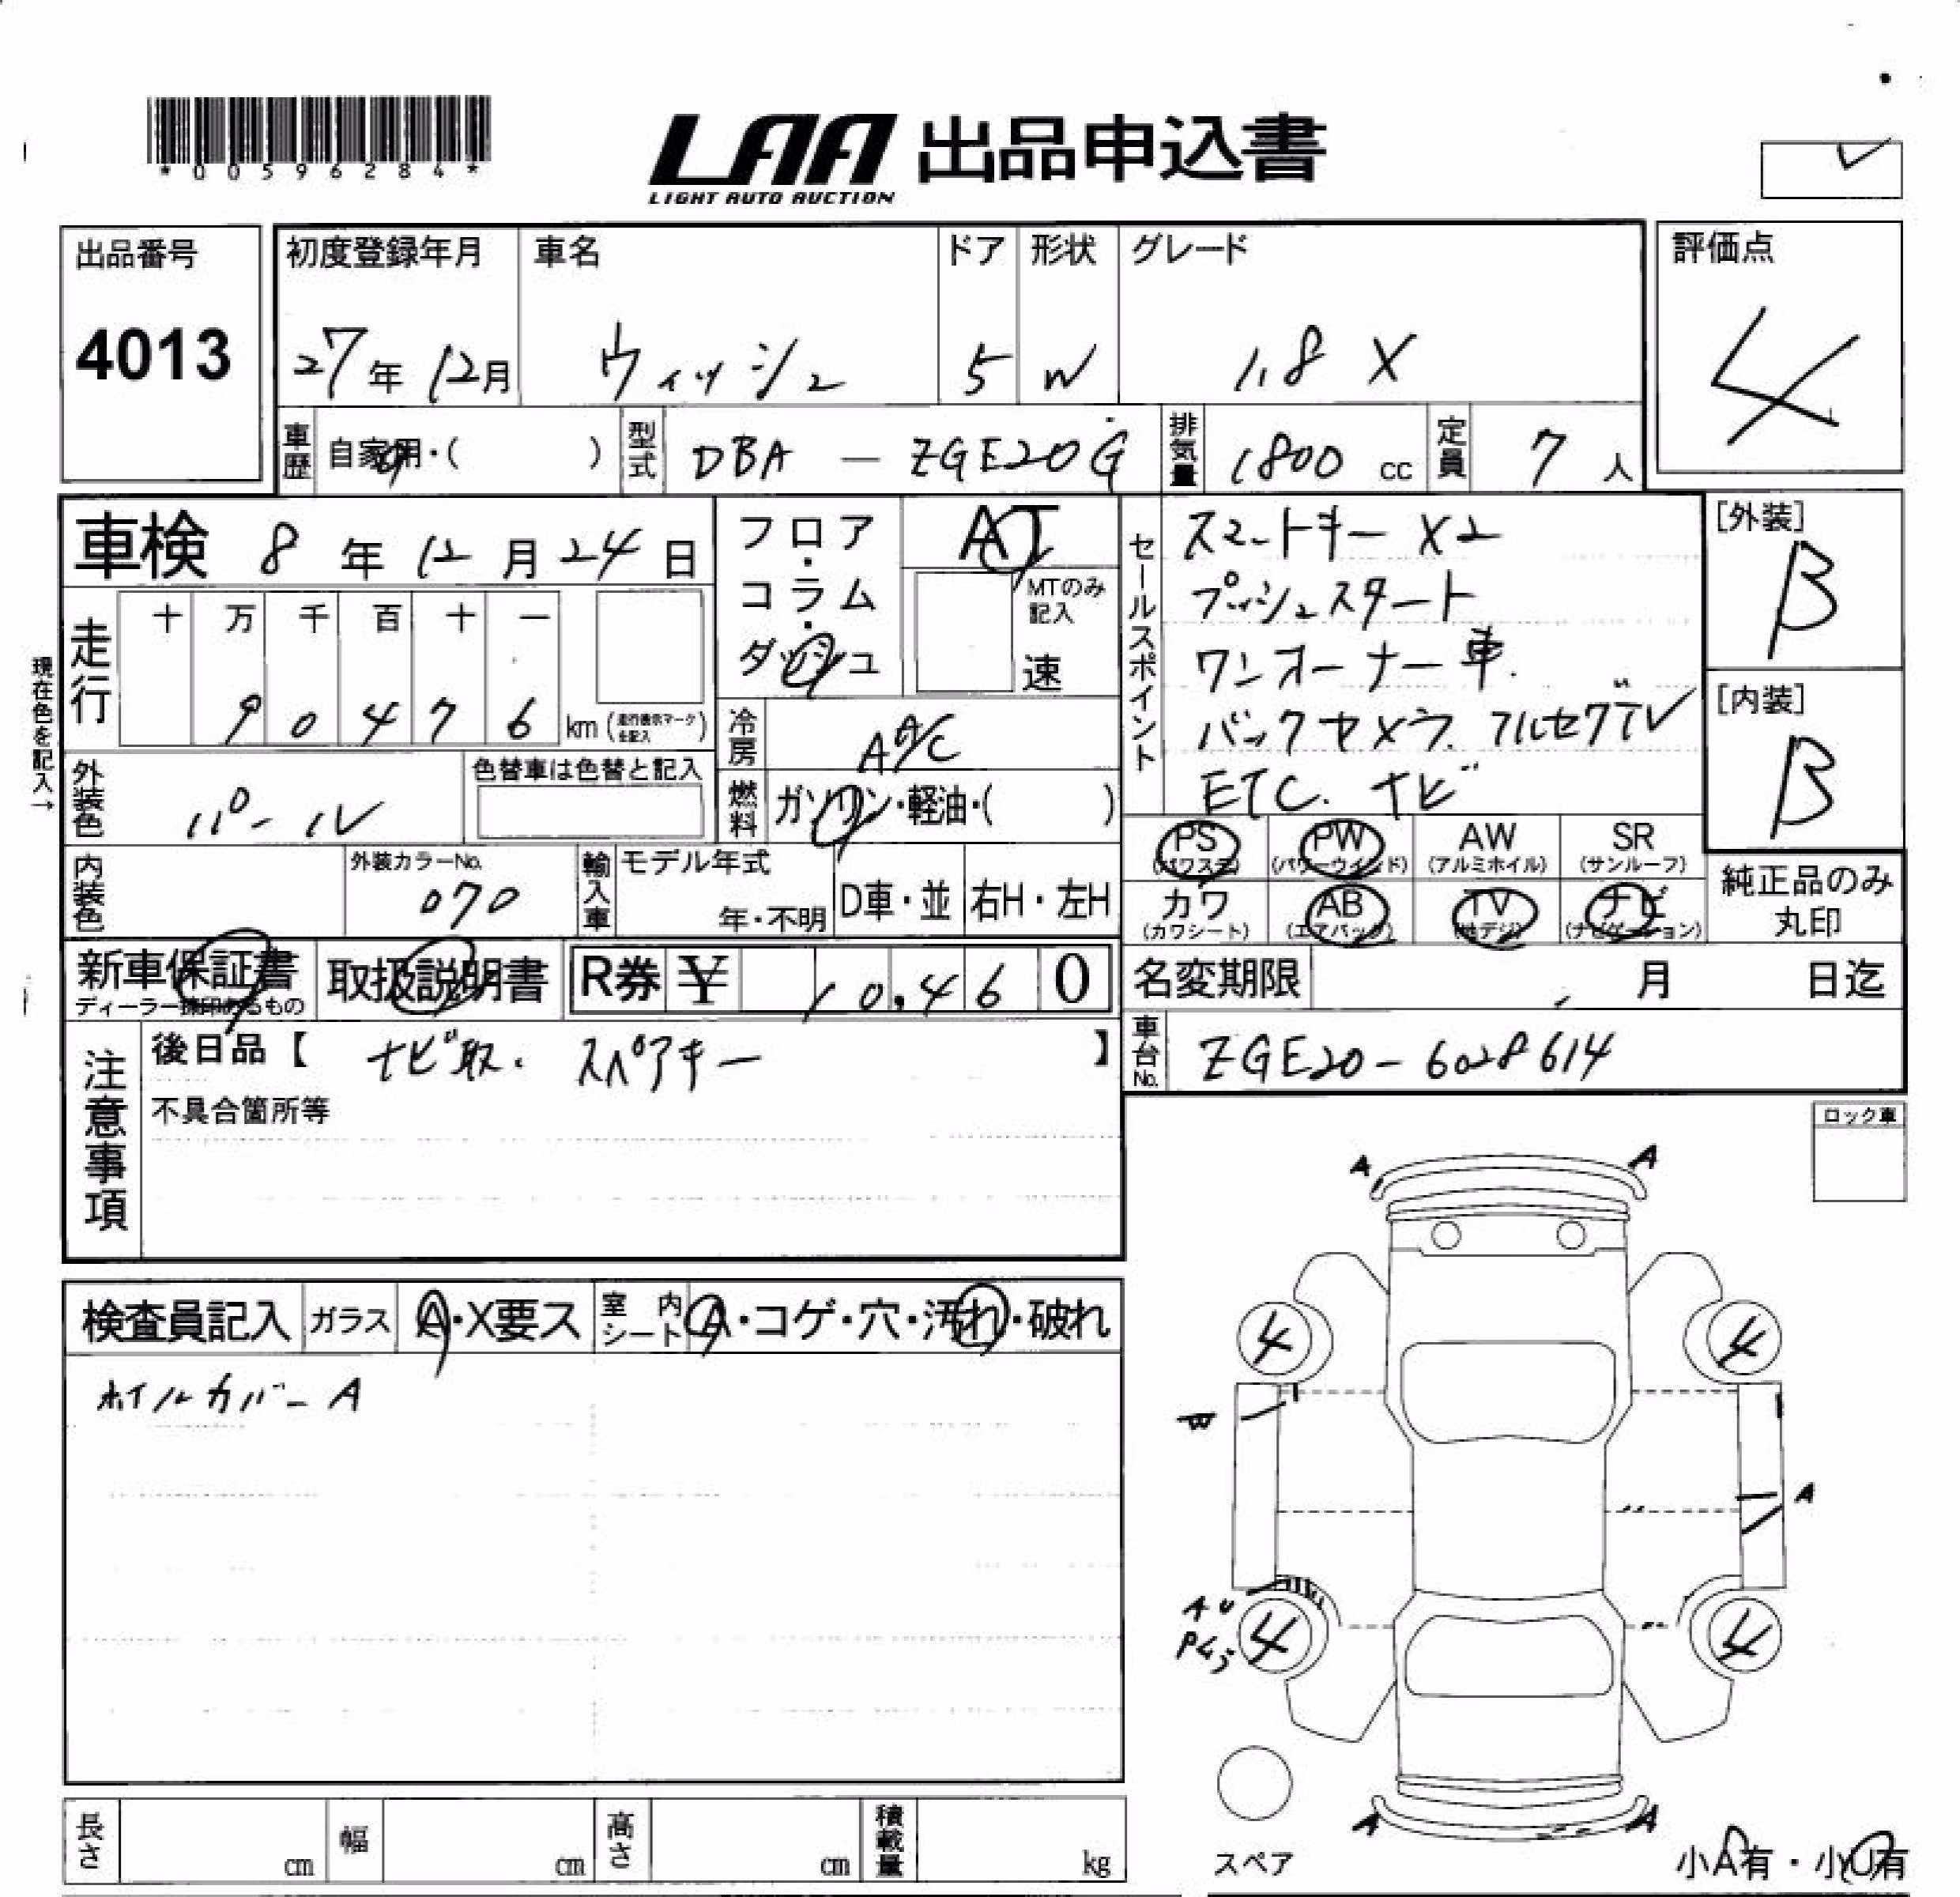 *00596284*
LAA 出品申込書
LIGHT AUTO AUCTION
出品番号 4013
初度登録年月 27年12月
車名 ウィッシュ
ドア 5
形状 W
グレード 1.8 X
評価点 4
車歴 自家用・( )
型式 DBA — ZGE20G
排気量 1800 cc
定員 7 人
車検 8年12月24日
フロア・コラム・ダッシュ
AT
MTのみ記入
速
セールスポイント
スマートキー X2
プッシュスタート
ワンオーナー車.
バックカメラ. フルセグTV
ETC. ナビ
[外装] B
[内装] B
現在色を記入→
走行 十 万 千 百 十 一
9 0 4 7 6 km (走行表示マークを記入)
冷房 A A/C
燃料 ガソリン・軽油・( )
外装色 パール
色替車は色替と記入
内装色
外装カラーNo. 070
輸入車 モデル年式 年・不明
D車・並 右H・左H
PS (パワステ) PW (パワーウインド) AW (アルミホイル) SR (サンルーフ)
カワ (カワシート) AB (エアバック) TV (地デジ) ナビ (ナビゲーション)
純正品のみ丸印
新車保証書
ディーラー捺印あるもの
取扱説明書
R券 ¥ 10,460
名変期限 月 日迄
車台No. ZGE20-6028614
注意事項
後日品【 ナビ取. スペアキー 】
不具合箇所等
ロック車
検査員記入 ガラス A・X要ス 室内シート A・コゲ・穴・汚れ・破れ
ホイルカバーA
A A
4 4
W
A
A U
4 4
A A
スペア
小A有・小U有
長さ cm 幅 cm 高さ cm 積載量 kg